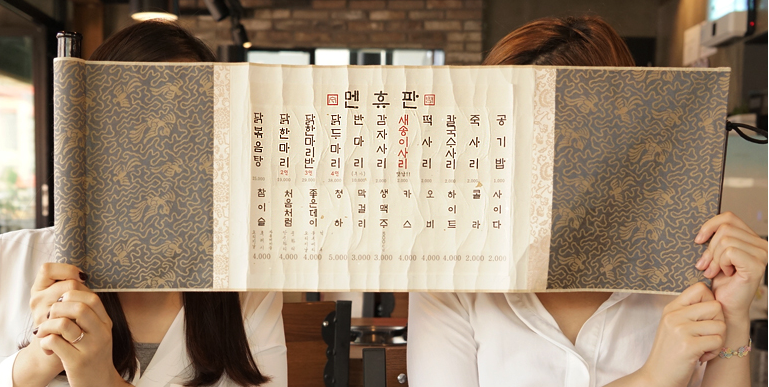 멘휴판
닭볶음탕
닭한마리
2인
닭한마리반
3인
닭두마리
4인
반마리
감자사리
새송이사리
떡사리
칼국수사리
죽사리
공기밥
참이슬
4,000
처음처럼
4,000
좋은데이
4,000
청하
5,000
막걸리
3,000
생맥주
3,000
카스
4,000
오비
4,000
하이트
4,000
콜라
2,000
사이다
2,000